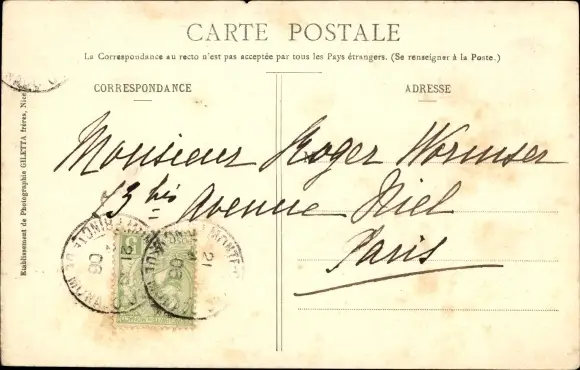 CARTE POSTALE
La Correspondance au recto n'est pas acceptée par tous les Pays étrangers. (Se renseigner à la Poste.)
CORRESPONDANCE
ADRESSE
Etablissement de Photographie GILETTA frères, Nice
Monsieur Roger Wormser
73 bis Avenue Niel
Paris
21
08
21
08